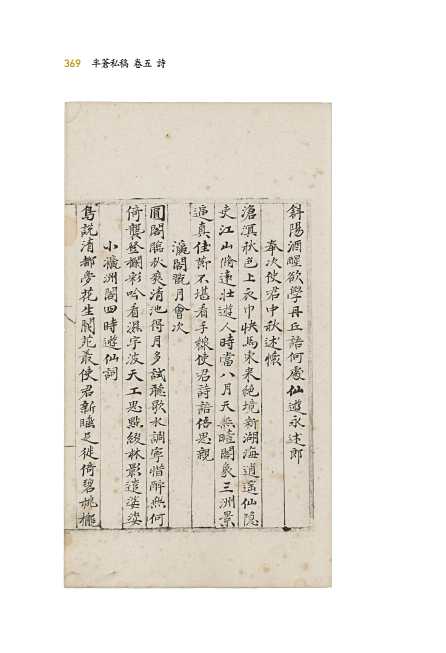 369 半蒼私稿 卷五 詩
斜陽酒醒欲學丹丘語何處仙遊永述郎
奉次使君中秋述懷
滄溟秋色上衣巾快馬東來絶境新湖海逍遥仙隐
吏江山脩遠壯遊人時當八月天無曀閣象三洲景
逼真佳節不堪看手線使君詩語倍思親
瀛閣翫月會次
圓閣臨秋爽清池得月多試聽歌水調寧惜醉無何
倚襲登欄彩吟看濕字波天工思點綴林影遣婆娑
小瀛洲閣四時遊仙詞
鳥說清都夢花生閬苑叢使君新職是徙倚碧桃櫳